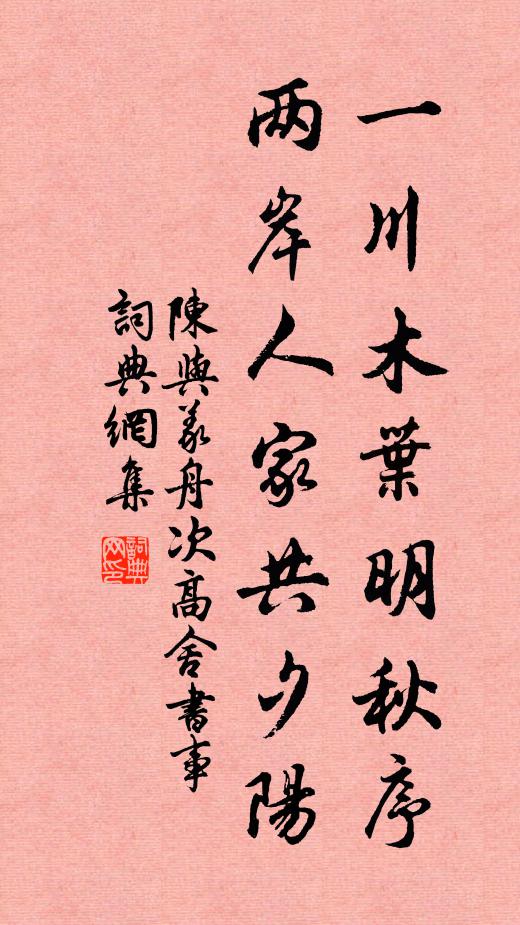 一川木葉明秋序
两岸人家共夕陽
陳與義舟次高舍書事
詞典網集
詞典网印